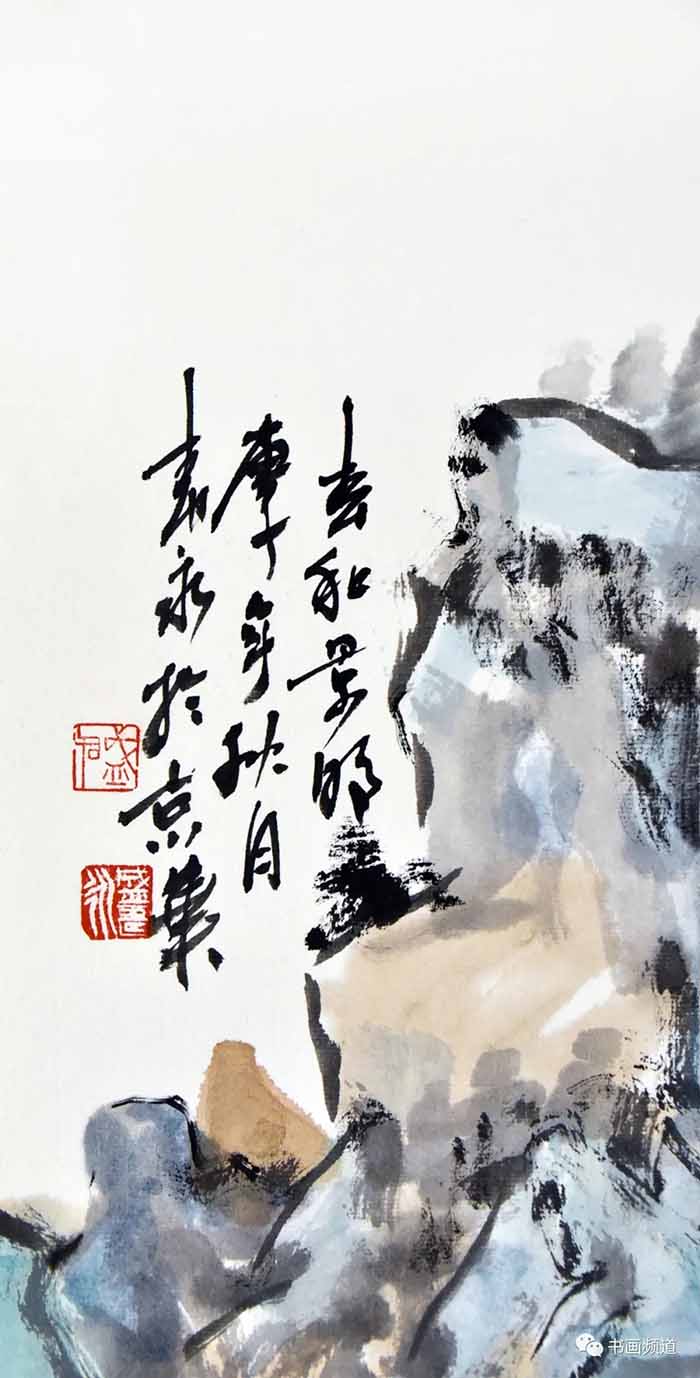 春和景明
庚子年秋月
永於京華
书画频道